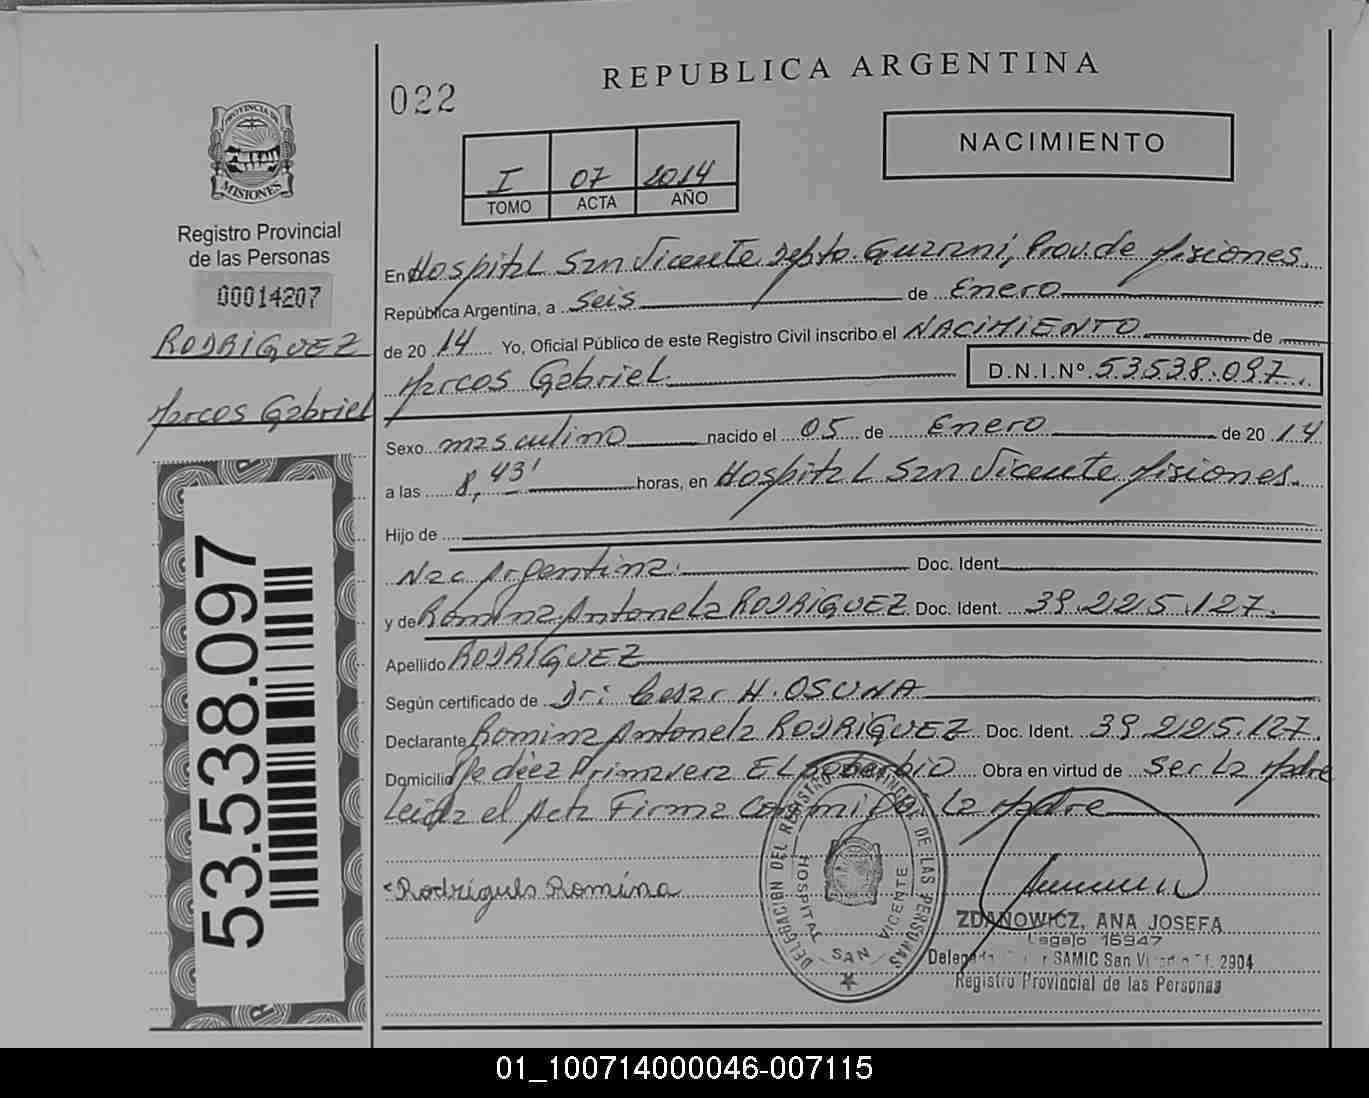 022
REPUBLICA ARGENTINA
NACIMIENTO
I 07 2014
TOMO ACTA AÑO
PROVINCIA DE
MISIONES
Registro Provincial
de las Personas
00014207
RODRIGUEZ
Marcos Gabriel
53.538.097
En Hospital San Vicente Depto. Guarani, Prov. de Misiones.
República Argentina, a seis de Enero
de 20 14 Yo, Oficial Público de este Registro Civil inscribo el NACIMIENTO de
Marcos Gabriel D.N.I.Nº 53538.097.
Sexo masculino nacido el 05 de Enero de 20 14
a las 8,43' horas, en Hospital San Vicente Misiones.
Hijo de
Nac Argentina. Doc. Ident.
y de Romina Antonela RODRIGUEZ Doc. Ident. 39.225.127.
Apellido RODRIGUEZ
Según certificado de Dr: Cesar H. OSUNA
Declarante Romina Antonela RODRIGUEZ Doc. Ident. 39.225.127.
Domicilio Primavera El Soberbio Obra en virtud de ser La Madre
Leida el Acta Firma Conmigo La Madre
Rodrigues Romina
DELEGACION DEL REGISTRO PROVINCIAL DE LAS PERSONAS
HOSPITAL SAN VICENTE
ZDANOWICZ, ANA JOSEFA
Legajo 16947
SAMIC San 2904
Registro Provincial de las Personas
01_100714000046-007115